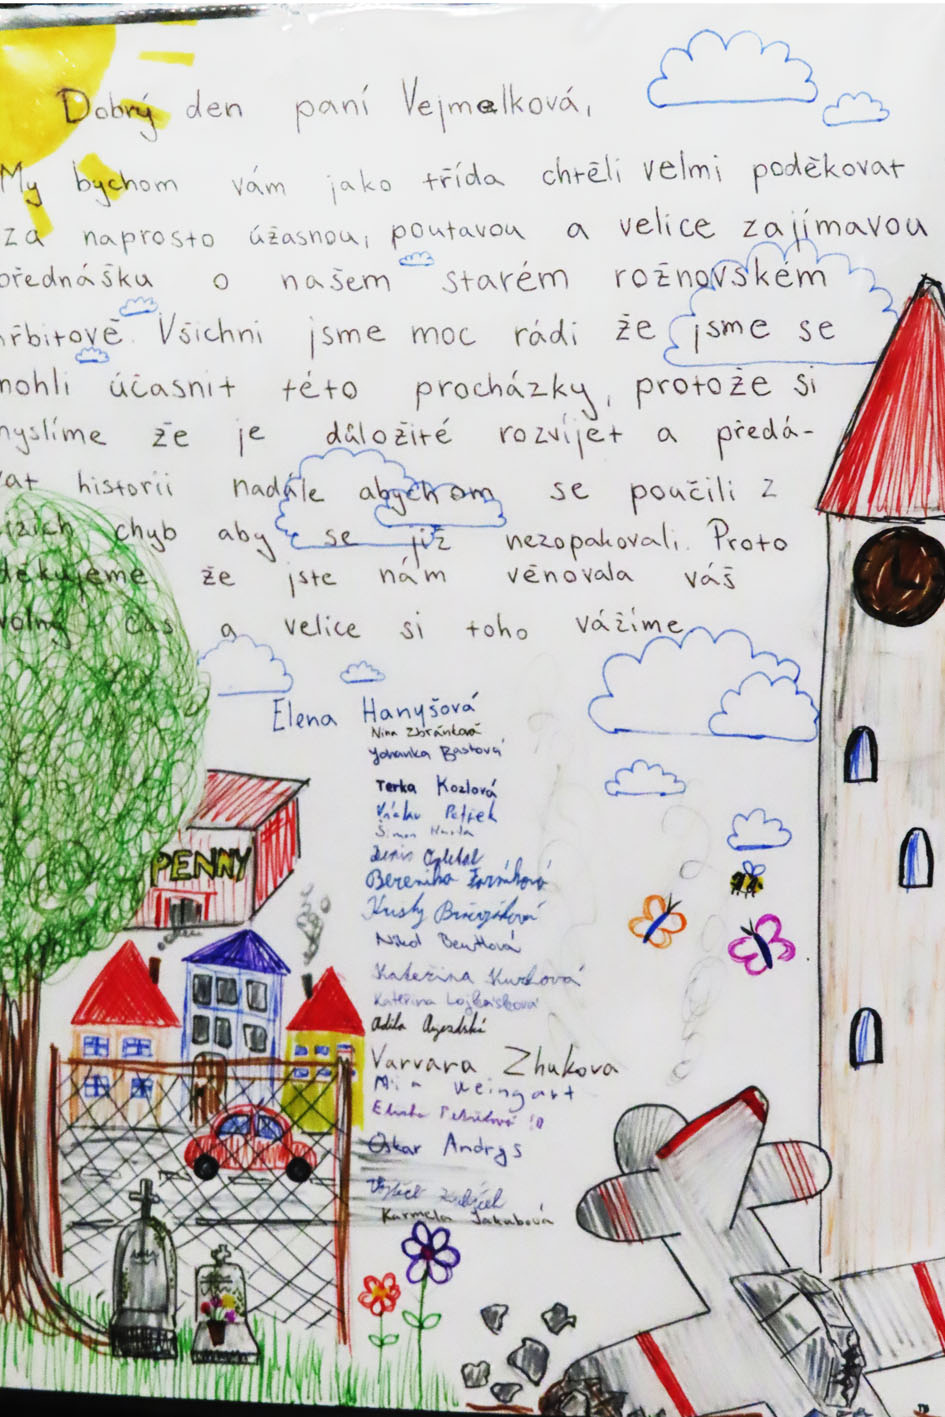 Dobrý den paní Vejmelková,
My bychom vám jako třída chtěli velmi poděkovat
za naprosto úžasnou, poutavou a velice zajímavou
přednášku o našem starém rožnovském
hřbitově. Všichni jsme moc rádi že jsme se
mohli účasnit této procházky, protože si
myslíme že je důložité rozvíjet a předá-
vat historii nadále abychom se poučili z
cizích chyb aby se již nezopakovali. Proto
děkujeme že jste nám věnovala váš
volný čas a velice si toho vážíme.
Elena Hanyšová
Nina Zbránková
Johanka Bastová
Terka Kozlová
Petřek
Šimon
Denis
Berenika
Kristy
Nikol
Kateřina
Kateřina
PENNY
Adéla
Varvara Zhukova
Mia Weingart
Eliška
Oskar Andrýs
Vojtěch
Karmela Jakubová